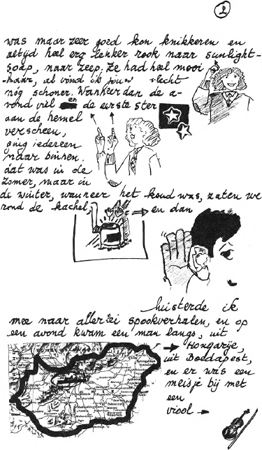 2
was maar zeer goed kon knikkeren en
altijd heel erg lekker rook naar sunlight-
soap, naar zeep. Ze had heel mooi
haar, al vond ik jouw vlecht
nóg schoner. Wanneer dan de a-
vond viel en de eerste ster
aan de hemel
verscheen,
ging iedereen
naar binnen.
dat was in de
zomer, maar in
de winter, wanneer het koud was, zaten we
rond de kachel
en dan
luisterde ik
mee naar allerlei spookverhalen, en op
een avond kwam een man langs, uit
Hongarije,
uit Boedapest,
en er was een
meisje bij met
een
viool